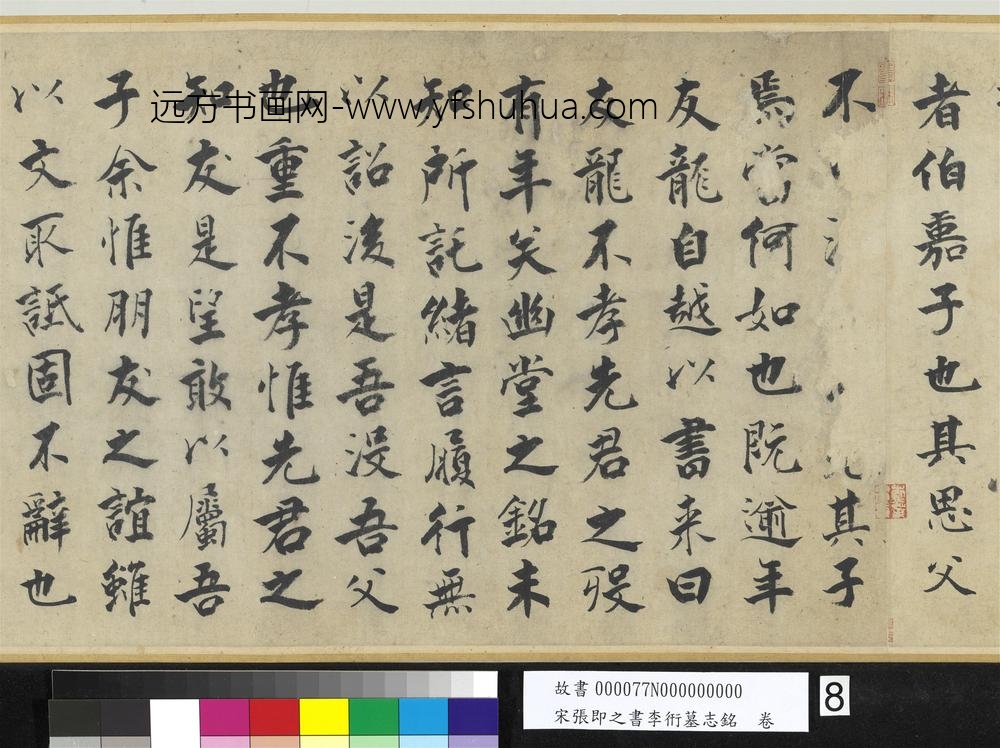 者伯嘉子也其思父
不其子
焉當何如也既逾年
友龍自越以書来曰
友龍不孝先君之歿
有年矣幽堂之銘未
知所託緒言履行無
以詔後是吾没吾父
也重不孝惟先君之
知友是望敢以屬吾
子余惟朋友之誼雖
以文取詆固不辭也
远方书画网-www.yfshuhua.com
故書 000077N000000000
宋張即之書李衎墓志銘 卷
8